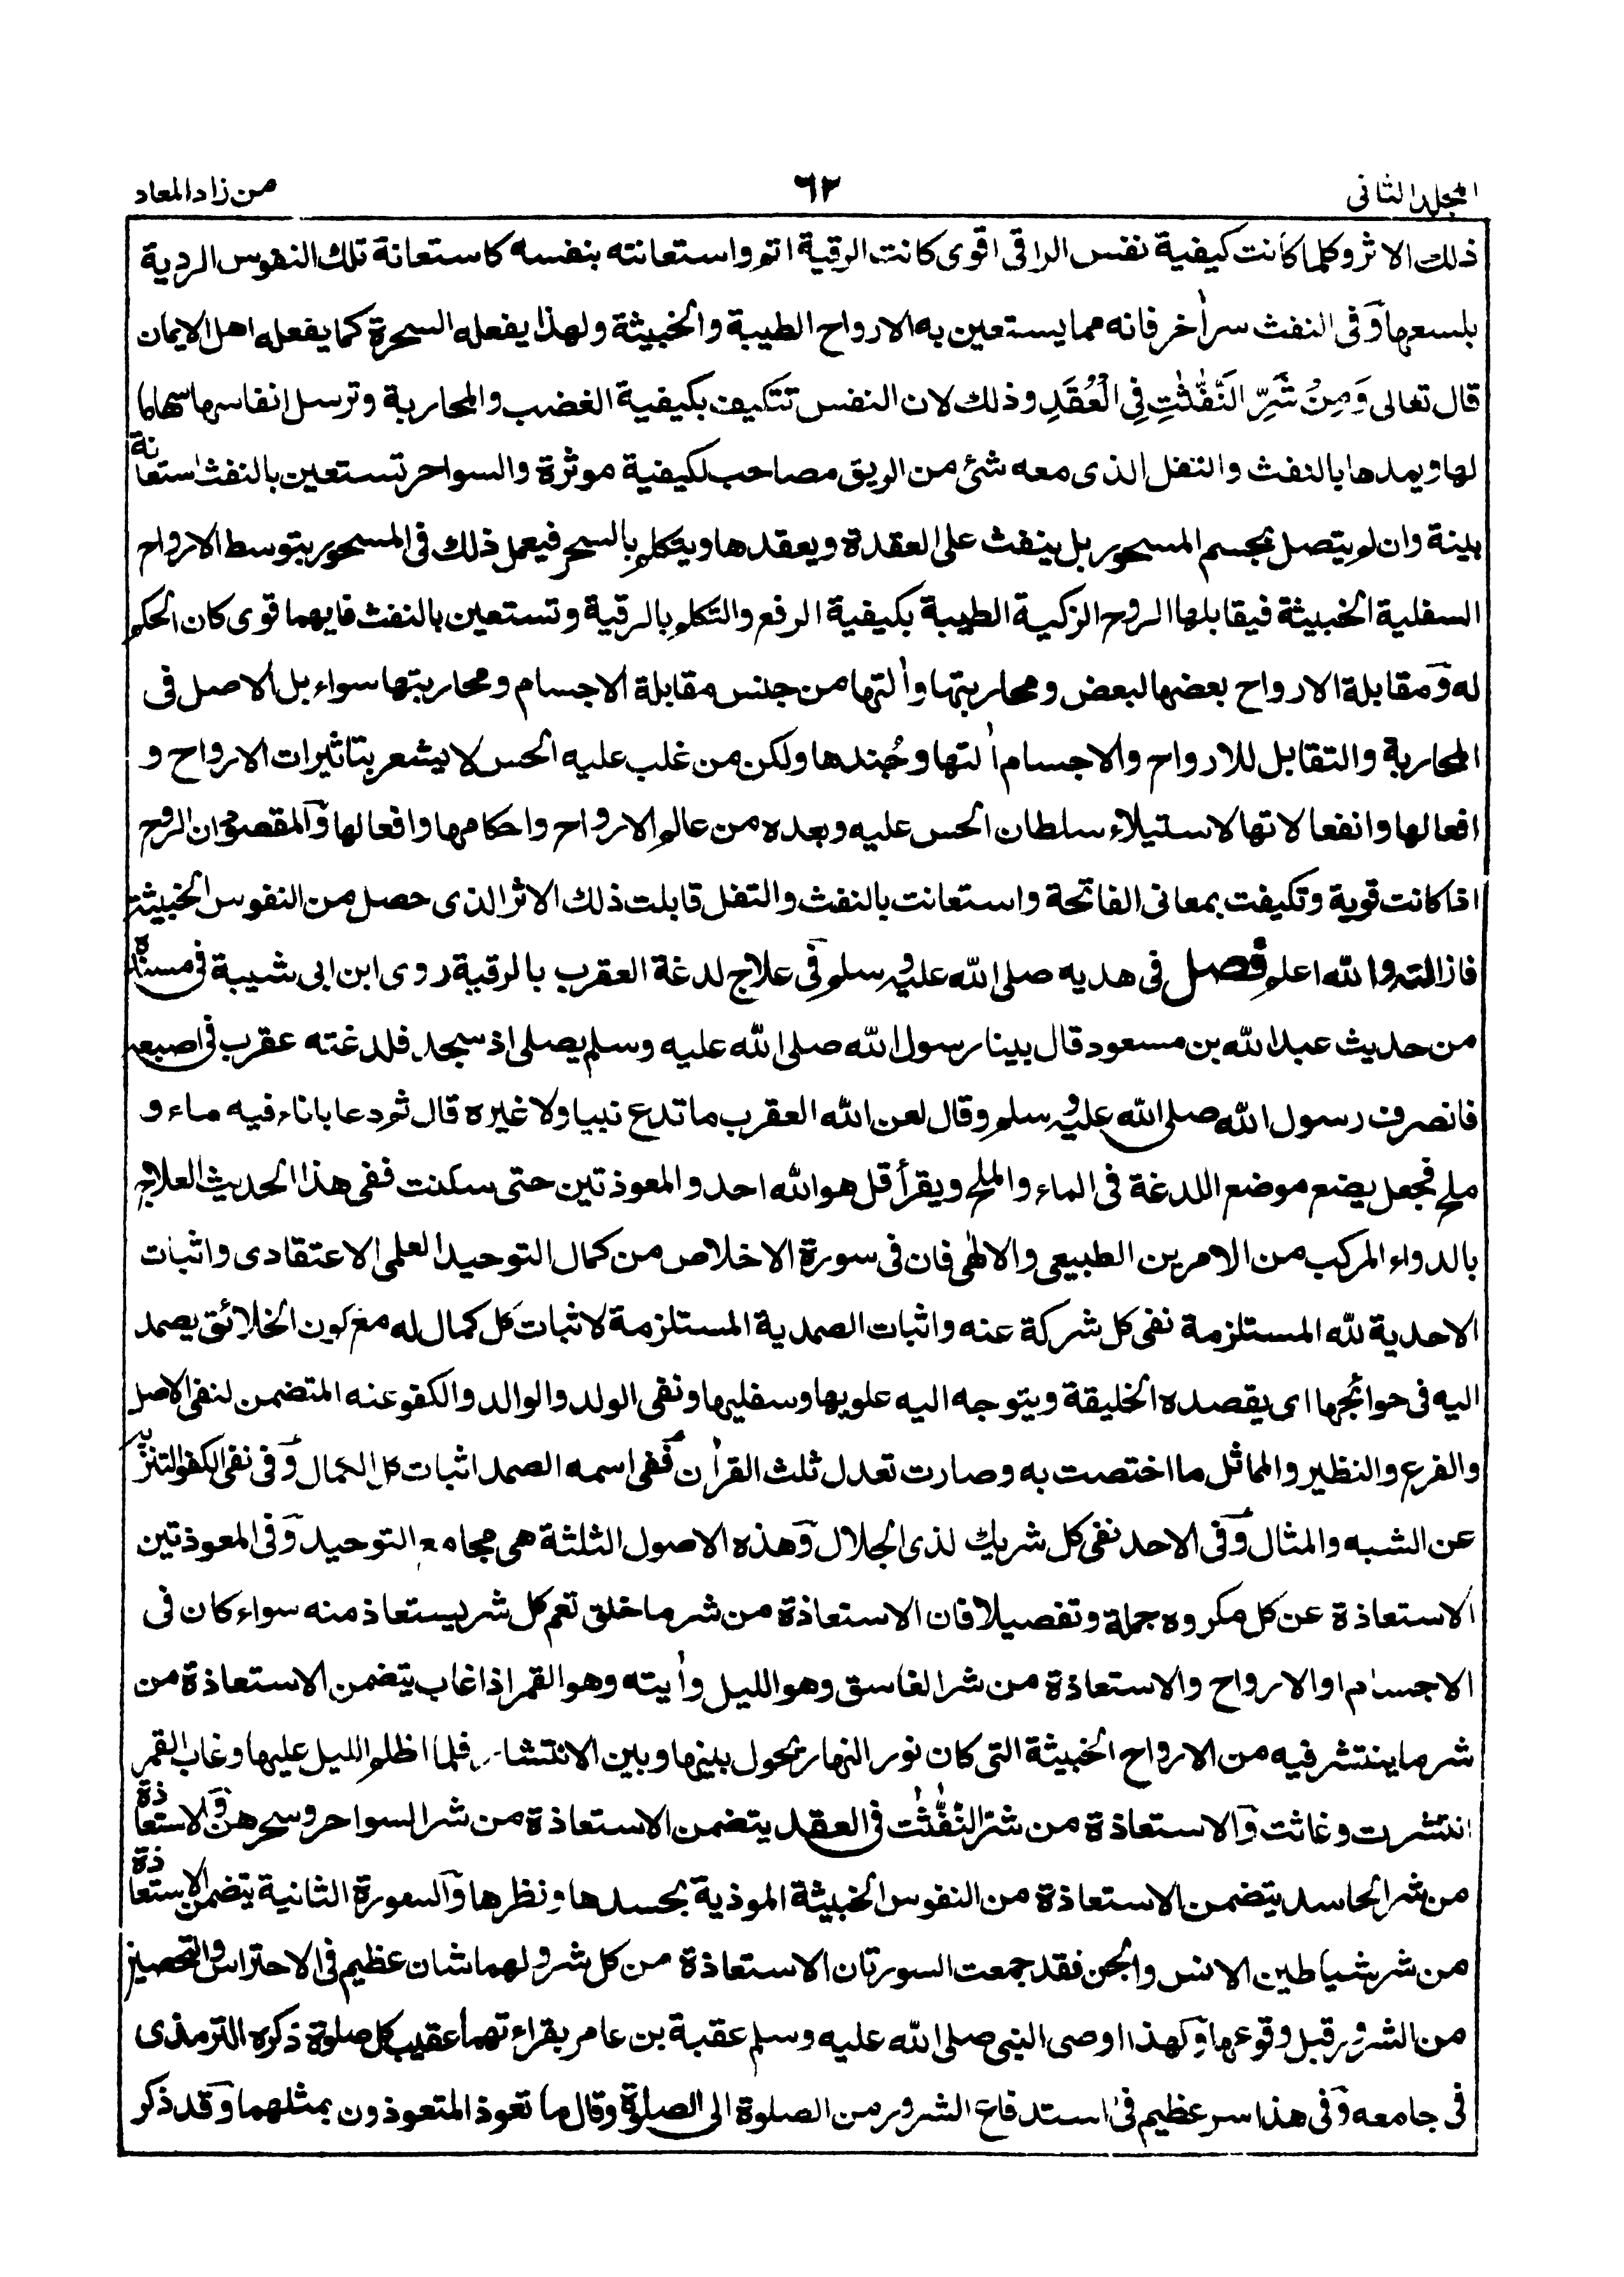 المجلد الثانى
٦٢
من زاد المعاد
ذلك الاثر وكلما كانت كيفية نفس الراقى اقوى كانت الرقية اتم واستعانته بنفسه كاستعانة تلك النفوس الردية
بلسعها وفى النفث سر اٰخر فانه مما يستعين به الارواح الطيبة والخبيثة ولهذا يفعله السحرة كما يفعله اهل الايمان
قال تعالى وَمِنْ شَرِّ النَّفّٰثٰتِ فِى الْعُقَدِ وذلك لان النفس تتكيف بكيفية الغضب والمحاربة وترسل انفاسها سهاما
لها ويمدها بالنفث والتفل الذى معه شئ من الريق مصاحب لكيفية موثرة والسواحر تستعين بالنفث استعانة
بينة وان لم يتصل بجسم المسحور بل ينفث على العقدة ويعقدها ويتكلم بالسحر فيعمل ذلك فى المسحور بتوسط الارواح
السفلية الخبيثة فيقابلها الروح الزكية الطيبة بكيفية الرفع والتكلم بالرقية وتستعين بالنفث فايهما قوى كان الحكم
له ومقابلة الارواح بعضها لبعض ومحاربتها واٰلتها من جنس مقابلة الاجسام ومحاربتها سواء بل الاصل فى
المحاربة والتقابل للارواح والاجسام اٰلتها وجُندها ولكن من غلب عليه الحس لا يشعر بتاثيرات الارواح و
افعالها وانفعالاتها لاستيلاء سلطان الحس عليه وبعده من عالم الارواح واحكامها وافعالها والمقصود ان الروح
اذا كانت قوية وتكيفت بمعانى الفاتحة واستعانت بالنفث والتفل قابلت ذلك الاثر الذى حصل من النفوس الخبيثة
فازالته والله اعلم فصل فى هديه صلى الله عليه وسلم فى علاج لدغة العقرب بالرقية روى ابن ابى شيبة فى مسنده
من حديث عبد الله بن مسعود قال بينا رسول الله صلى الله عليه وسلم يصلى اذ سجد فلدغته عقرب فى اصبعه
فانصرف رسول الله صلى الله عليه وسلم وقال لعن الله العقرب ما تدع نبيا ولا غيره قال ثم دعا باناء فيه ماء و
ملح فجعل يضع موضع اللدغة فى الماء والملح ويقرأ قل هو الله احد والمعوذتين حتى سكنت ففى هذا الحديث العلاج
بالدواء المركب من الامرين الطبيعى والالهٰى فان فى سورة الاخلاص من كمال التوحيد العلمى الاعتقادى واثبات
الاحدية لله المستلزمة نفى كل شركة عنه واثبات الصمدية المستلزمة لاثبات كل كمال له مع كون الخلائق يصمد
اليه فى حوائجها اى يقصده الخليقة ويتوجه اليه علويها وسفليها ونفى الولد والوالد والكفو عنه المتضمن لنفى الاصل
والفرع والنظير والمماثل ما اختصت به وصارت تعدل ثلث القراٰن ففى اسمه الصمد اثبات كل الكمال وفى نفى الكفو التنزيه
عن الشبه والمثال وفى الاحد نفى كل شريك لذى الجلال وهذه الاصول الثلثة هى مجامع التوحيد وفى المعوذتين
الاستعاذة عن كل مكروه جملة وتفصيلا فان الاستعاذة من شر ما خلق تعم كل شر يستعاذ منه سواء كان فى
الاجسام او الارواح والاستعاذة من شر الغاسق وهو الليل واٰيته وهو القمر اذا غاب يتضمن الاستعاذة من
شر ما ينتشر فيه من الارواح الخبيثة التى كان نور النهار يحول بينها وبين الانتشار فلما اظلم الليل عليها وغاب القمر
انتشرت وغاثت والاستعاذة من شر النفّٰثٰت فى العقد يتضمن الاستعاذة من شر السواحر وسحرهن والاستعاذة
من شر الحاسد يتضمن الاستعاذة من النفوس الخبيثة الموذية بحسدها ونظرها والسورة الثانية يتضمن الاستعاذة
من شر شياطين الانس والجن فقد جمعت السورتان الاستعاذة من كل شر ولهما شان عظيم فى الاحتراس والتحصين
من الشرور قبل وقوعها ولهذا اوصى النبى صلى الله عليه وسلم عقبة بن عامر بقراءتهما عقيب كل صلوة ذكره الترمذى
فى جامعه وفى هذا سر عظيم فى استدفاع الشرور من الصلوة الى الصلوة وقال ما تعوذ المتعوذون بمثلهما وقد ذكر